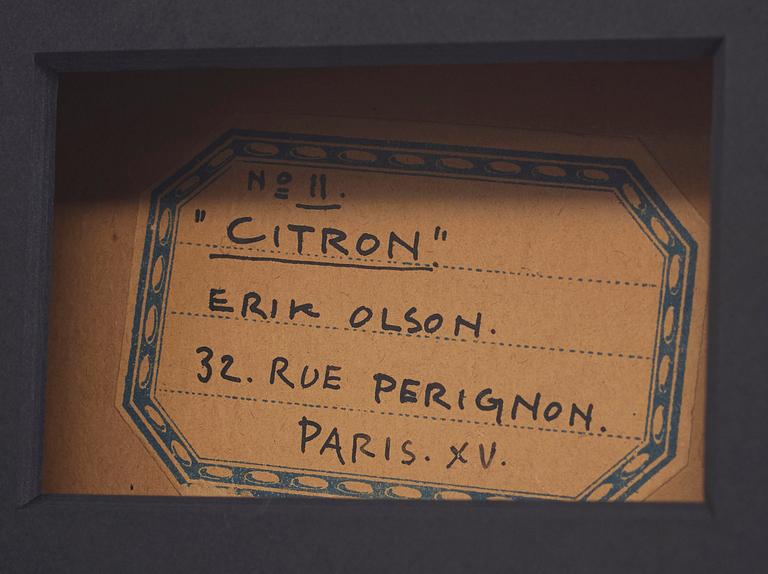 Nº 11.
"CITRON".
ERIK OLSON.
32. RUE PERIGNON.
PARIS. XV.